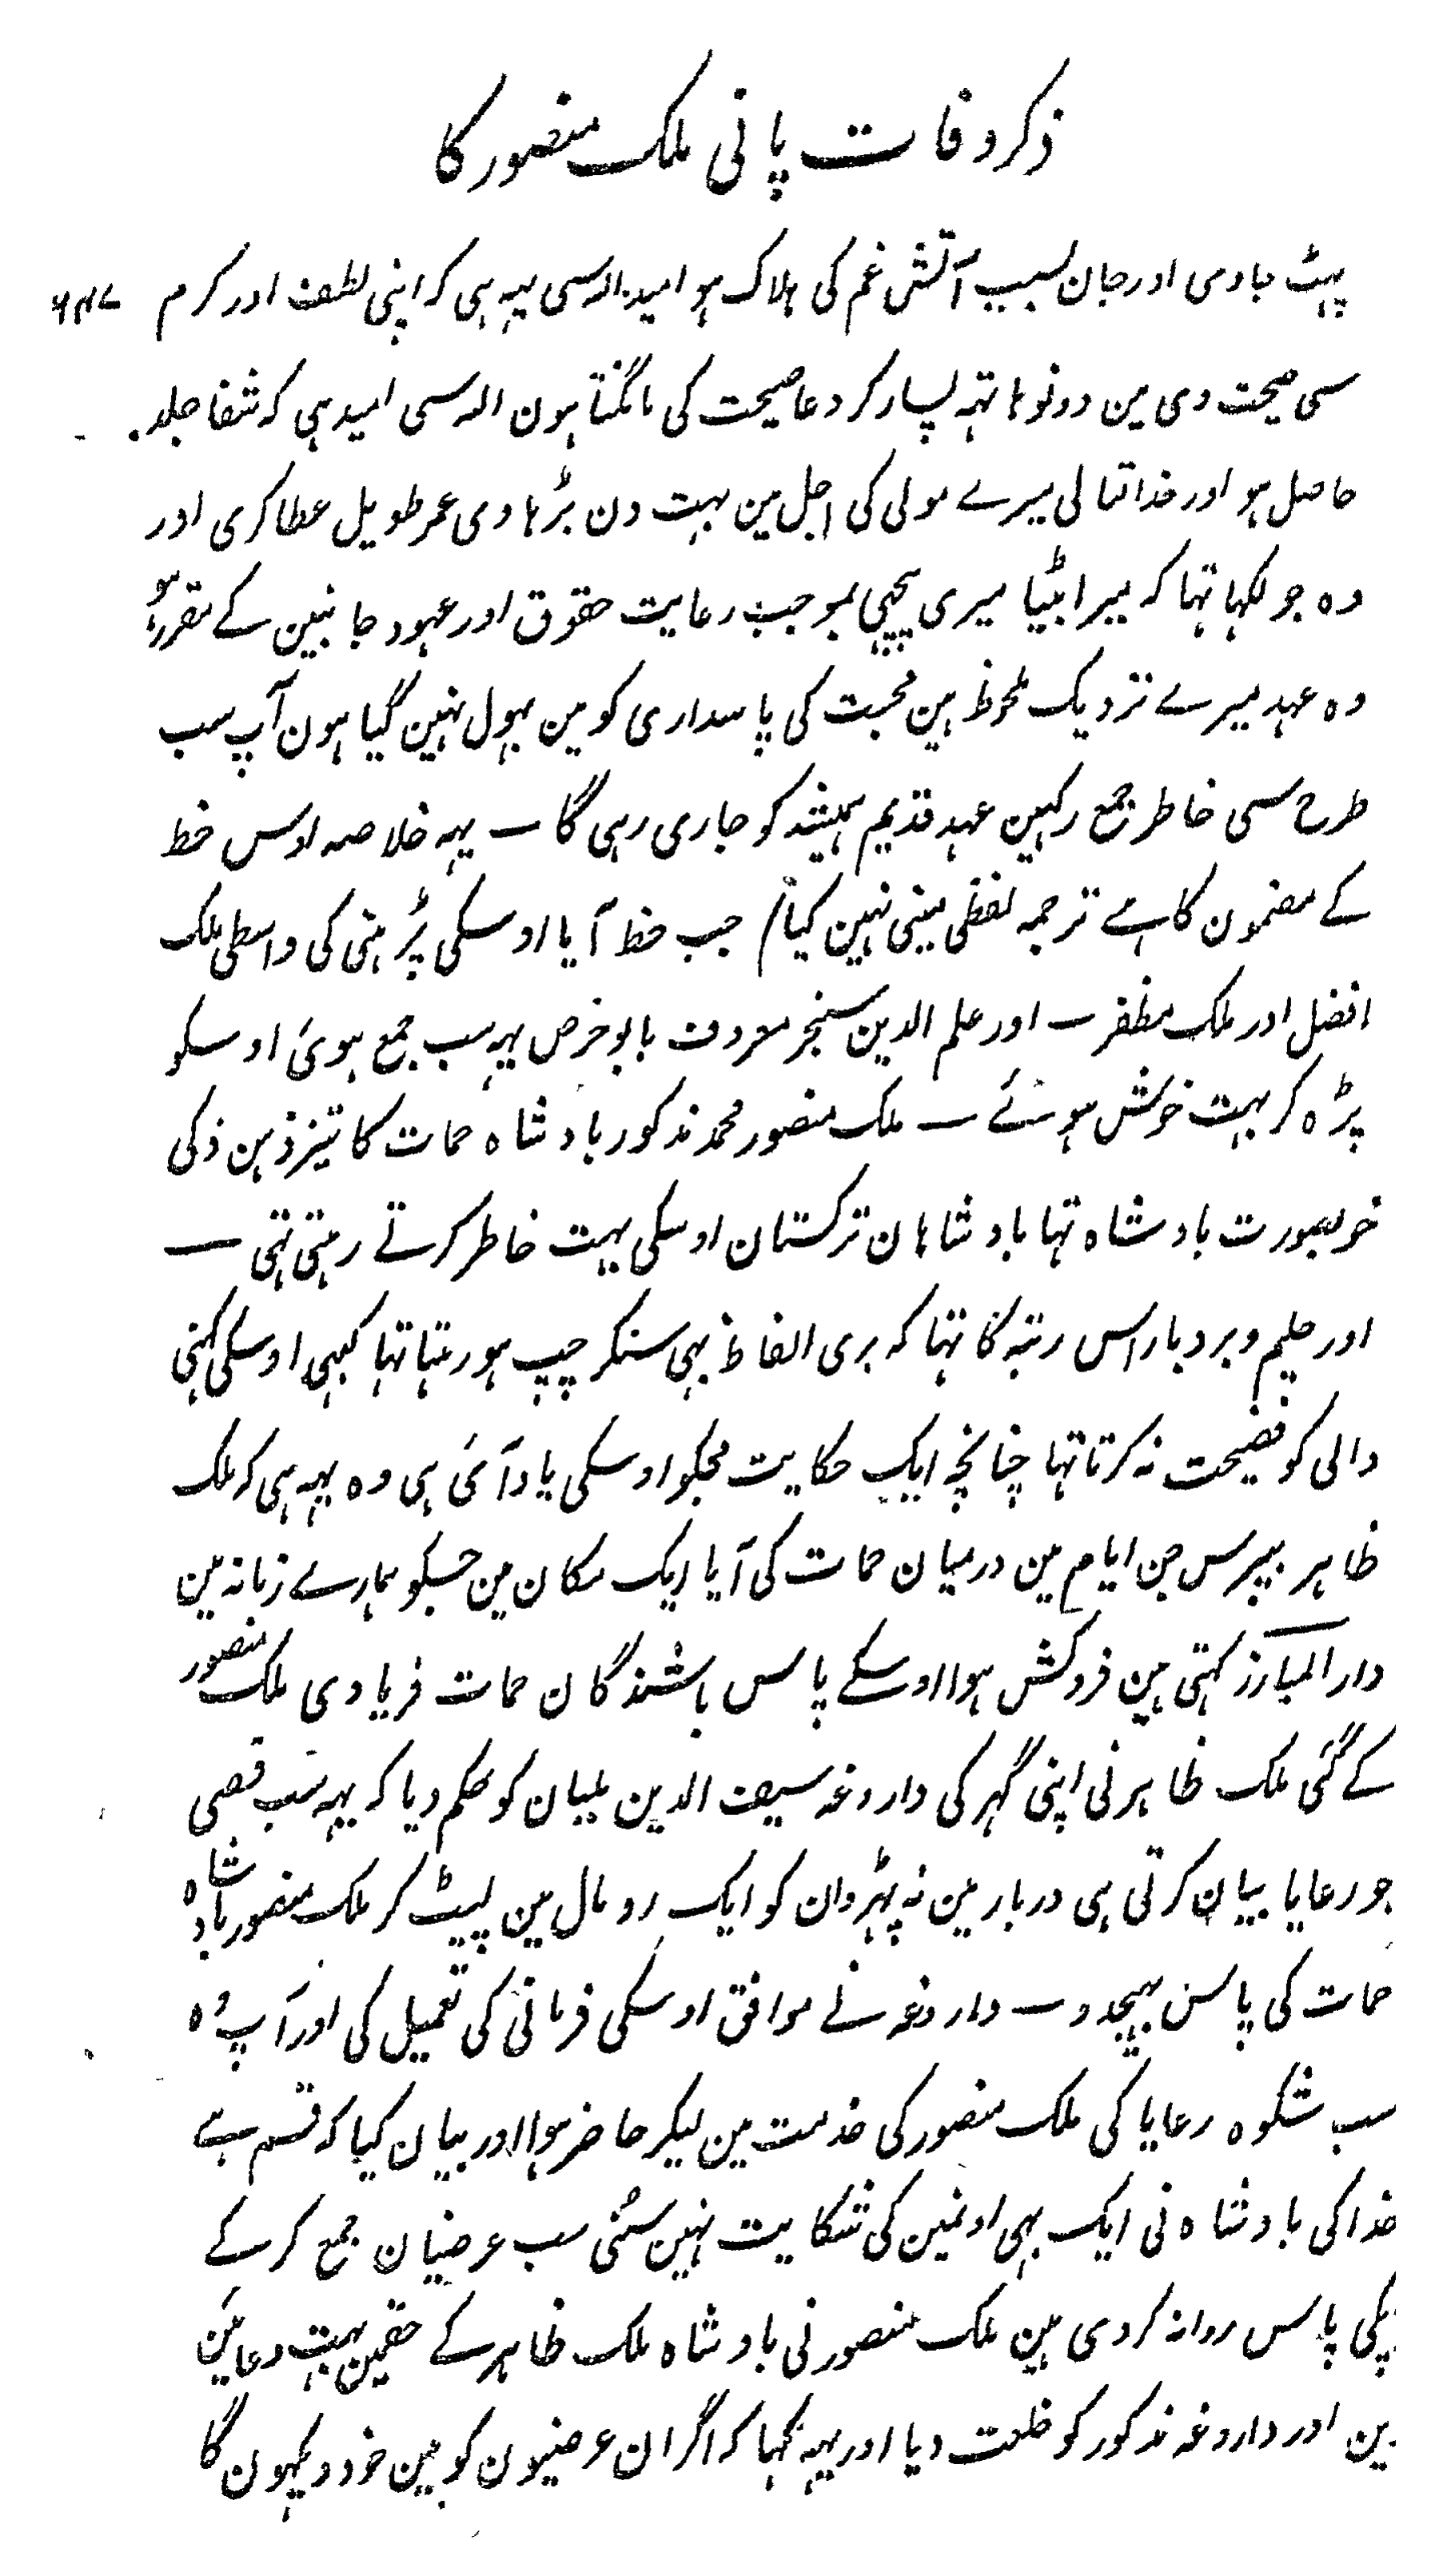 ذکر وفات پانی ملک منصور کا
پہٹ جاوی اور جان بسبب آتش غم کی ہلاک ہو امید اللہ سی یہہ ہی کہ اپنی لطف اور کرم
سی صیحت دی مین دونو ہاتہہ پسار کر دعا صیحت کی مانگتا ہون اللہ سی امید ہی کہ شفا جلد
حاصل ہو اور خداتعالی میرے مولی کی اجل مین بہت دن بڑہا دی عمر طویل عطا کری اور
وہ جو لکہا تہا کہ میرا بٹیا میری پیچہی بموجب رعایت حقوق اور عہود جانبین کے مقرر ہو
وہ عہد میرے نزدیک ملحوظ ہین محبت کی پاسداری کو مین بہول نہین گیا ہون آپ سب
طرح سی خاطر جمع رکہین عہد قدیم ہمیشہ کو جاری رہی گا ــ یہہ خلاصہ اوس خط
کے مضمون کا ہے ترجمہ لفظی مینی نہین کیا / جب خط آیا اوسکی پڑہنی کی واسطی ملک
افضل اور ملک مظفر ــ اور علم الدین سنجر معروف بابو خرص یہہ سب جمع ہوئ اوسکو
پڑہ کر بہت خوش ہوئے ــ ملک منصور محمد مذکور بادشاہ حمات کا تیز ذہن ذکی
خوبصورت بادشاہ تہا بادشاہان ترکستان اوسکی بہت خاطر کرتے رہتی تہی ــ
اور حلیم و بردبار اس رتبہ کا تہا کہ بری الفاظ بہی سنکر چپ ہو رہتا تہا کبہی اوسکی کہنی
والی کو فضیحت نہ کرتا تہا چنانچہ ایک حکایت مجکو اوسکی یاد آئی ہی وہ یہہ ہی کہ ملک
ظاہر بیبرس جن ایام مین درمیان حمات کی آیا ایک مکان مین جسکو ہمارے زمانہ مین
دار المبارز کہتی ہین فروکش ہوا اوسکے پاس باشندگان حمات فریادی ملک منصور
کے گئی ملک ظاہر نی اپنی گہر کی داروغہ سیف الدین بلبان کو حکم دیا کہ یہہ سب قصی
جو رعایا بیان کرتی ہی دربار مین نہ پہڑوان کو ایک رومال مین لپیٹ کر ملک منصور بادشاہ
حمات کی پاس بہیجدو ــ داروغہ نے موافق اوسکی فرمانی کی تعمیل کی اور آپ وہ
سب شکوہ رعایا کی ملک منصور کی خدمت مین لیکر حاضر ہوا اور بیان کیا کہ قسم ہے
خدا کی بادشاہ نی ایک بہی اونمین کی شکایت نہین سنی سب عرضیان جمع کر کے
پکی پاس روانہ کر دی ہین ملک منصور نی بادشاہ ملک ظاہر کے حقمین بہت دعائین
دین اور داروغہ مذکور کو خلعت دیا اور یہہ کہا کہ اگر ان عرضیون کو مین خود دیکہون گا